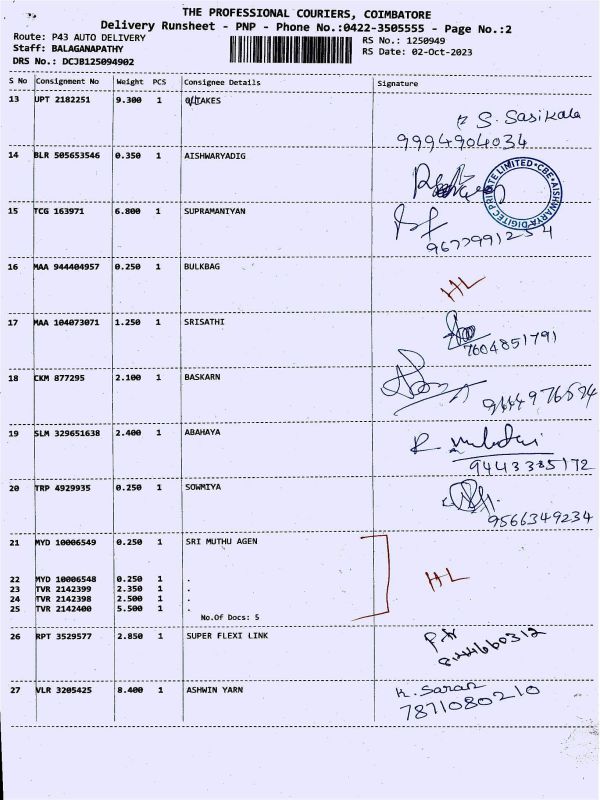 THE PROFESSIONAL COURIERS, COIMBATORE
Delivery Runsheet - PNP - Phone No.:0422-3505555 - Page No.:2
Route: P43 AUTO DELIVERY
RS No.: 1250949
Staff: BALAGANAPATHY
RS Date: 02-Oct-2023
DRS No.: DCJB125094902
S No Consignment No Weight PCS Consignee Details Signature
13 UPT 2182251 9.300 1
S. Sasikala
9994904034
14 BLR 505653546 0.350 1 AISHWARYADIG
PRIVATE LIMITED * CBE * AISHWARYA DIGITEC
15 TCG 163971 6.800 1 SUPRAMANIYAN
16 MAA 944404957 0.250 1 BULKBAG
HL
17 MAA 104073071 1.250 1 SRISATHI
7604851791
18 CKM 877295 2.100 1 BASKARN
19 SLM 329651638 2.400 1 ABAHAYA
9443385172
20 TRP 4929935 0.250 1 SOWMIYA
9566349234
21 MYD 10006549 0.250 1 SRI MUTHU AGEN
22 MYD 10006548 0.250 1 .
HL
23 TVR 2142399 2.350 1 .
24 TVR 2142398 2.500 1 .
25 TVR 2142400 5.500 1 .
No.Of Docs: 5
26 RPT 3529577 2.850 1 SUPER FLEXI LINK
27 VLR 3205425 8.400 1 ASHWIN YARN
K. Saran
7871080210